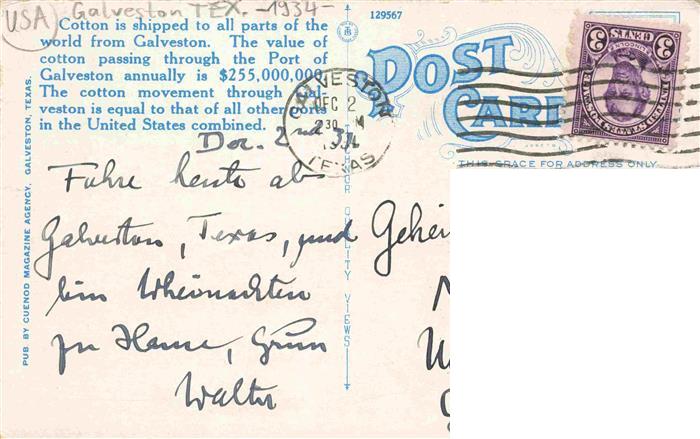 USA Galveston TEX. -1934-
Cotton is shipped to all parts of the
world from Galveston. The value of
cotton passing through the Port of
Galveston annually is $255,000,000
The cotton movement through Gal-
veston is equal to that of all other ports
in the United States combined.
PUB. BY CUENOD MAGAZINE AGENCY, GALVESTON, TEXAS.
129567
POST
CARD
THIS SPACE FOR ADDRESS ONLY
GALVESTON
DEC 2
2 30 M
TEXAS
UNITED STATES POSTAGE
LINCOLN
3 CENTS 3
QUALITY VIEWS
Dec. 2nd 34
Fahre heute ab
Galveston, Texas, und
bin Weihnachten
zu Hause, Gruss
Walter